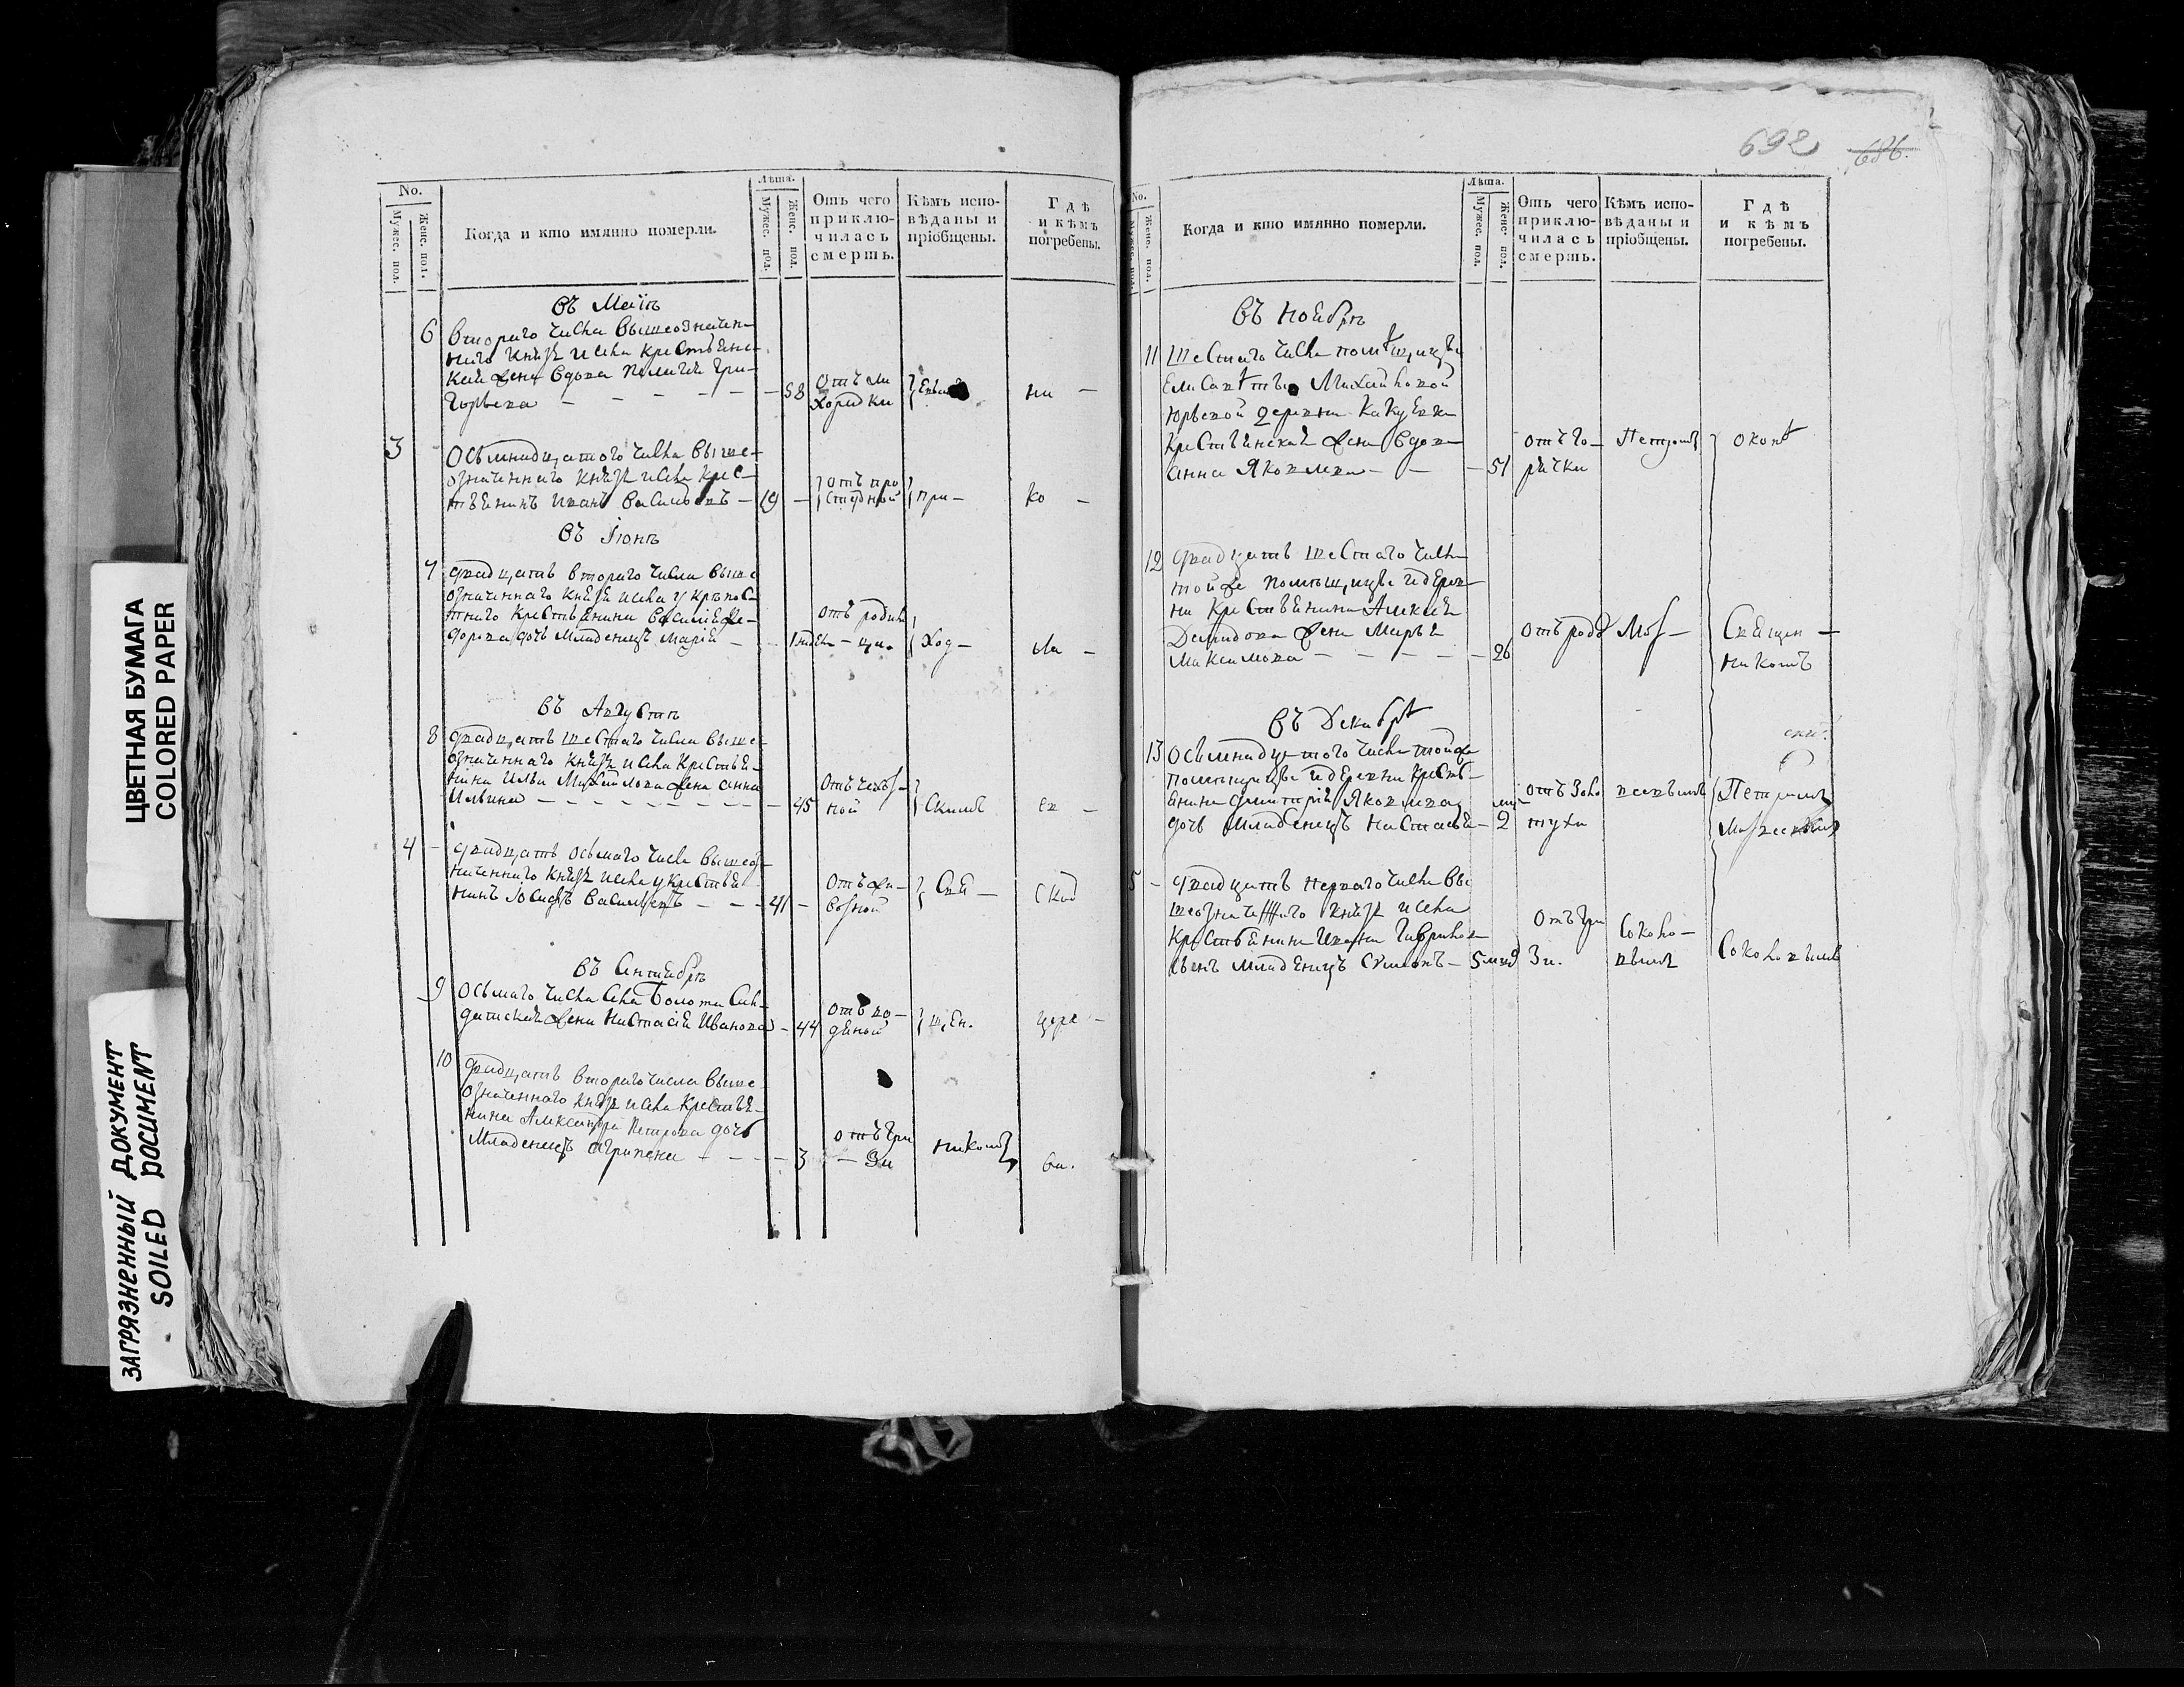 692 686.
No.
Мужес. пол.
Женс. пол.
Когда и кто имянно померли.
Лѣта.
Мужес. пол.
Женс. пол.
Отъ чего
приклю-
чилась
смерть.
Кѣмъ испо-
вѣданы и
пріобщены.
Гдѣ
и кѣмъ
погребены.
въ Маіѣ
6 втораго числа вышеозначен-
наго князя и села крестьянс-
кая жена вдова Пелагия Гри-
горьева – 58 отъ ли
хорадки
на –
3 – Осьмнадцатаго числа выше-
означеннаго князя и села крес-
тьянинъ Иванъ Васильевъ – 19 – отъ про
студной при – ко –
въ Іюнѣ
7 двадцать втораго числа выше
означеннаго князя и села у крѣпос-
тнаго крестьянина Василія Фе-
дорова дочь младенецъ Марія – 1 неде. отъ родим
– ца. Ход – ла –
въ Августѣ
8 двадцать шестаго числа выше-
означеннаго князя и села крестья-
нина Ильи Михайлова жена Анна
Ильина – 45 отъ чехот-
ной Скимъ ев –
4 – двадцать осьмаго числа вышеоз-
наченнаго князя и села у крестья-
нинъ Іосифъ Васильевъ – 41 –
Свя – скад
въ Сентябрѣ
9 осьмаго числа села Болота сол-
датская жена Настасія Иванова – 44 отъ во-
дяной щен. церк –
10 двадцать втораго числа выше
означеннаго князя и села крестья-
нина Александра Петрова дочь
младенецъ Агрипена – 3 отъ гры
– жи никомъ ви.
No.
Мужес. пол.
Женс. пол.
Когда и кто имянно померли.
Лѣта.
Мужес. пол.
Женс. пол.
Отъ чего
приклю-
чилась
смерть.
Кѣмъ испо-
вѣданы и
пріобщены.
Гдѣ
и кѣмъ
погребены.
въ Ноябрѣ
11 шестаго числа помѣщицы
Елисаветы Михайловой
Юрьевой деревни Какуевки
крестьянская жена вдова
Анна Яковлева – – 51 отъ го-
рячки Петромъ окопѣ
12 двадцать шестаго числа
тойже помѣщицы и дерев-
ни крестьянина Алексія
Давидова жена Марья
Максимова – 26 отъ родо Моз – Священ –
никомъ
въ Декабрѣ
13 осьмнадцатого числа тойже
помѣщицы и деревни кресть-
янина Димитрія Яковлева
дочь младенецъ Настасья – 2 отъ золо
тухи Петромъ
5 – двадцать перваго числа вы
шеозначеннаго князя и села
крестьянина Ивана Гаврилова
сынъ младенецъ Сумеонъ – 5 отъ гры
жи. Соколо –
вымъ Соколовымъ
ЦВЕТНАЯ БУМАГА
COLORED PAPER
ЗАГРЯЗНЕННЫЙ ДОКУМЕНТ
SOILED DOCUMENT